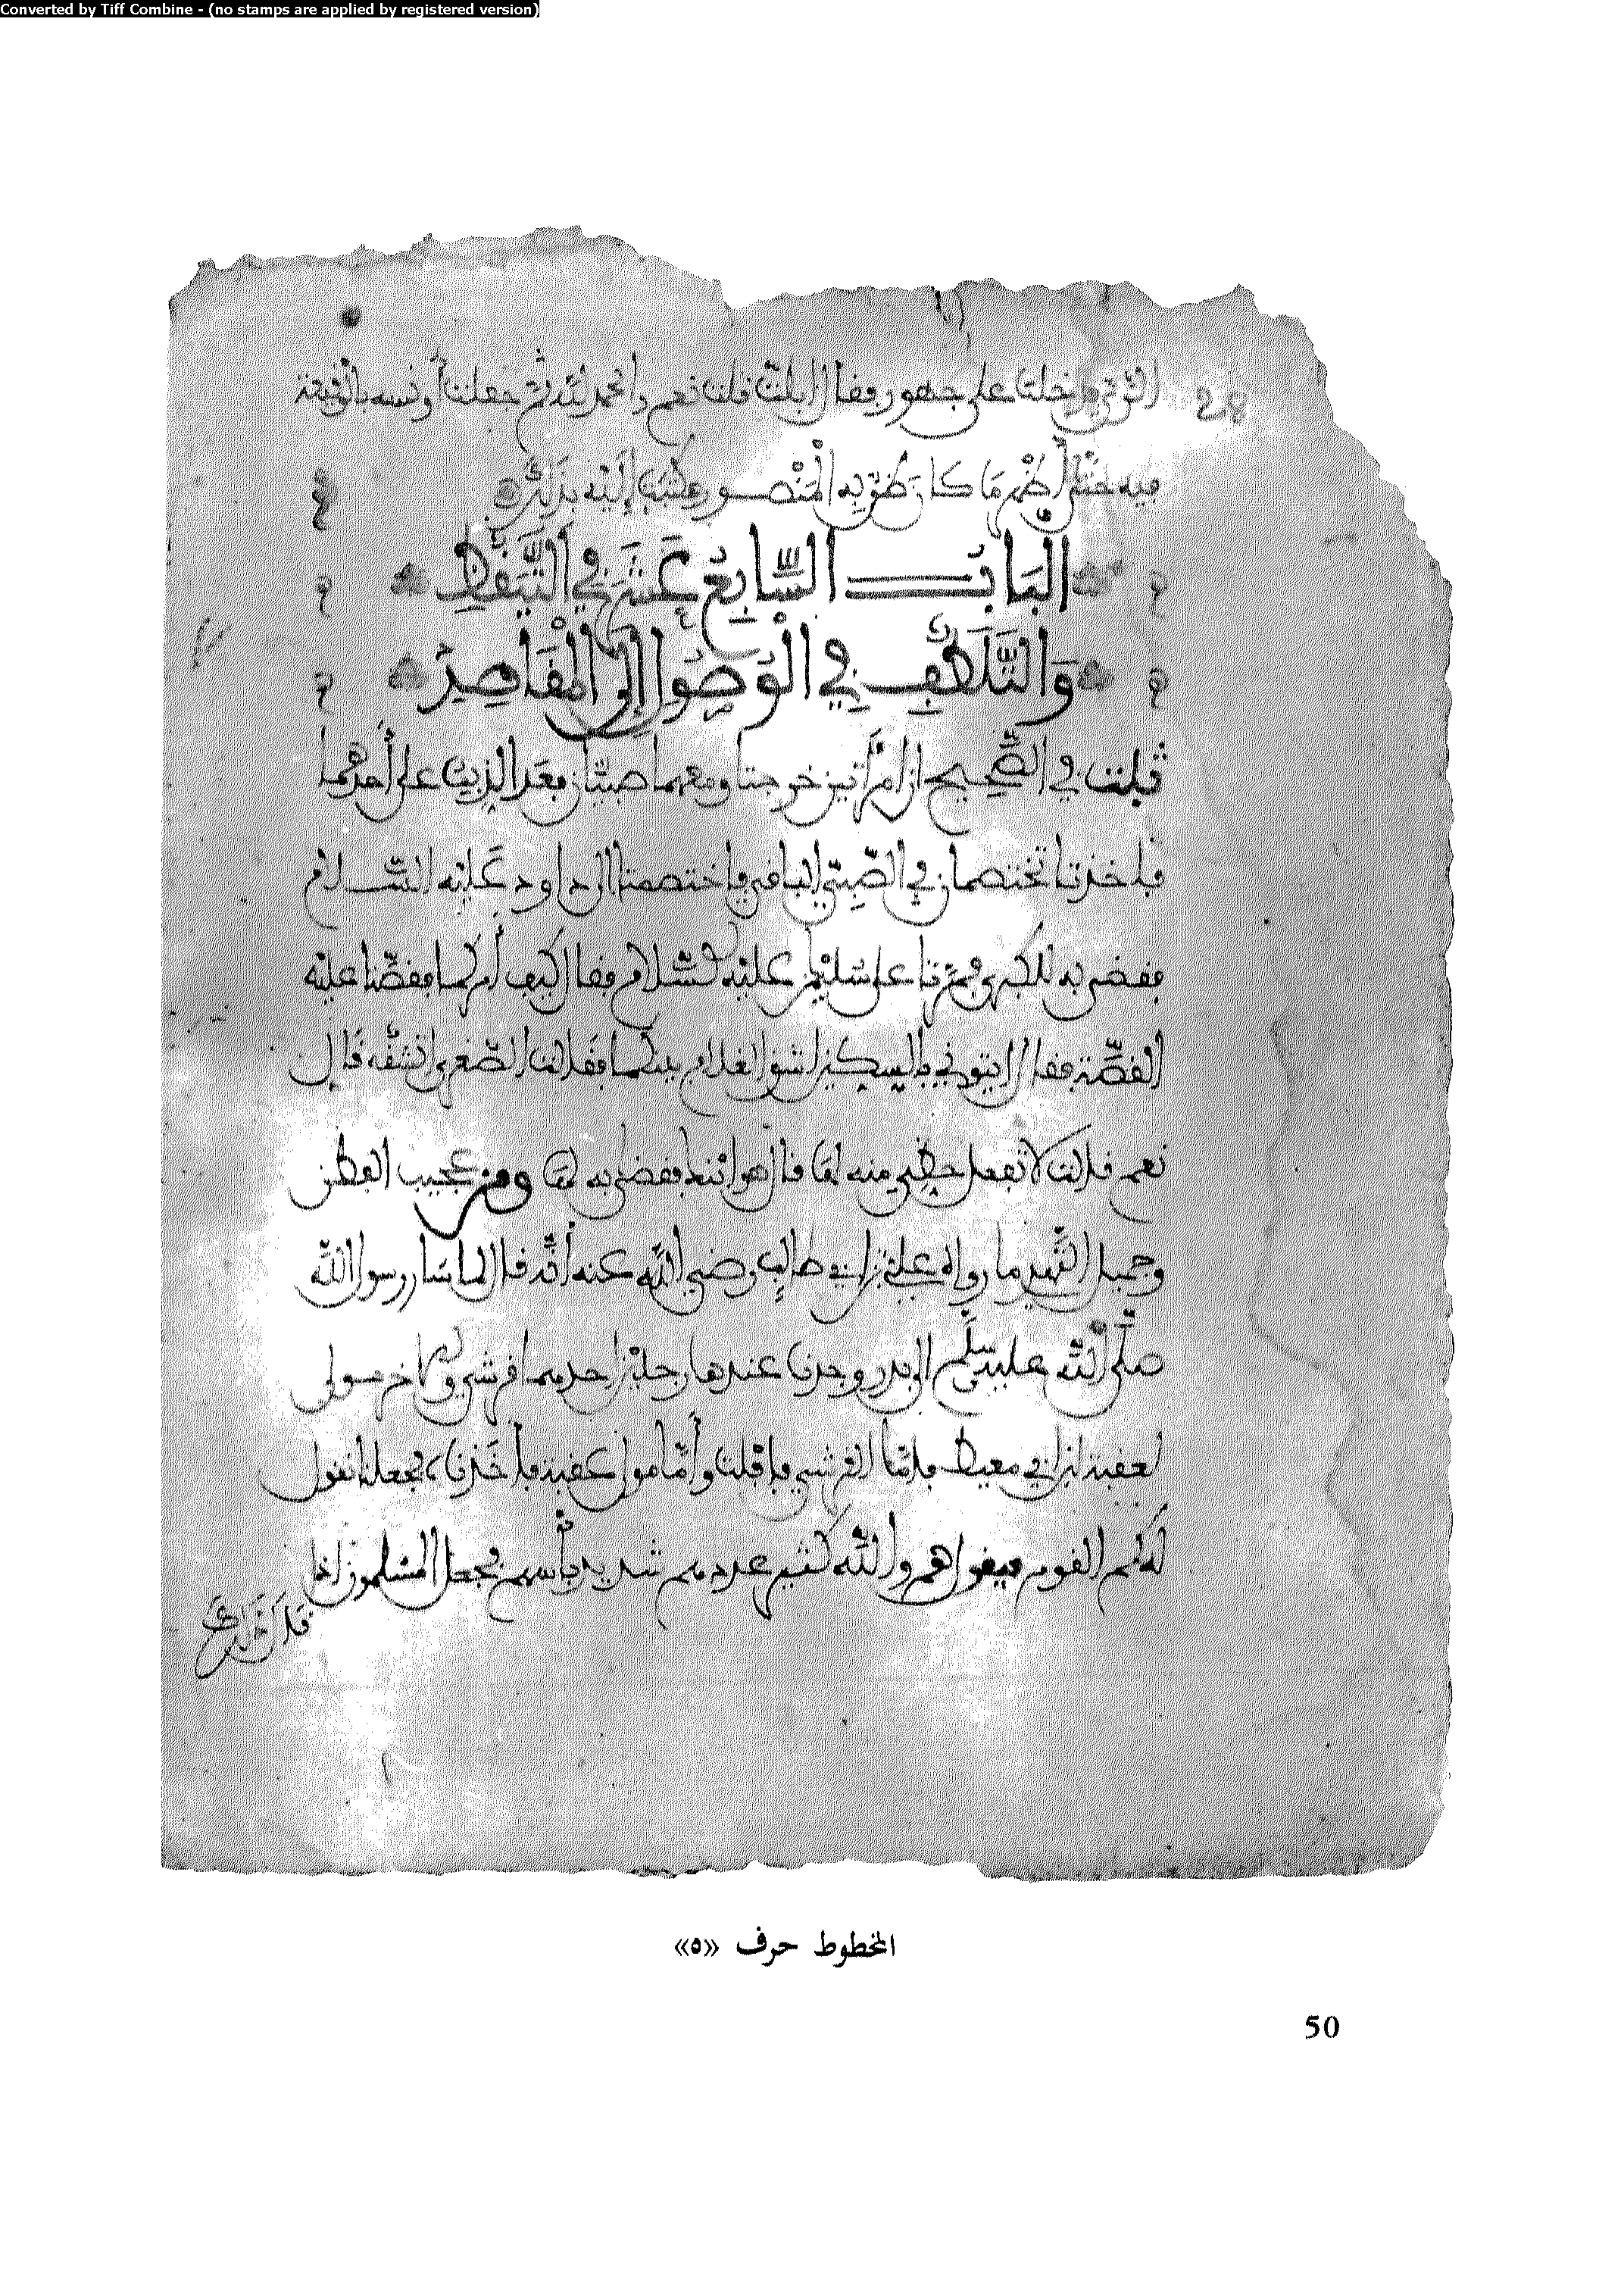 Converted by Tiff Combine - (no stamps are applied by registered version)
دخلت على جهور فقال ابللت قلت نعم والحمد لله ثم جعلت أونسه بالوقيعة
فيه حتى أظهر ما كان طوى به المنصور وكتبت إليه بذلك
الباب السابع عشر في التيقظ
والتلطف في الوصول إلى المقاصد
ثبت في الصحيح ان امرأتين خرجتا ومعهما صبيان فعدا الذيب على أحدهما
فأخذتا تختصمان في الصبي الباقي فاختصمتا الى داود عليه السلام
فقضى به للكبرى فمرتا على سليمن عليه السلام فقال كيف أمركما فقصتا عليه
القصة فقال ايتوني بالسكين اشق الغلام بينكما فقالت الصغرى اتشقه قال
نعم قالت لا تفعل حظي منه لها قال هو ابنك فقضى به لها ومن عجيب الفطن
وجميل ما رواه علي بن ابي طالب رضي الله عنه أنه قال لما سار رسول الله
صلى الله عليه وسلم الى بدر وجدنا عندها رجلين احدهما قرشي والاخر مولى
لعقبة ابن ابي معيط فاما القرشي فافلت وأما مولى عقبة فأخذناه فجعلنا نقول
له كم القوم فيقول هم والله كثير عددهم شديد بأسهم فجعل المسلمون اذا
المخطوط حرف «٥»
50